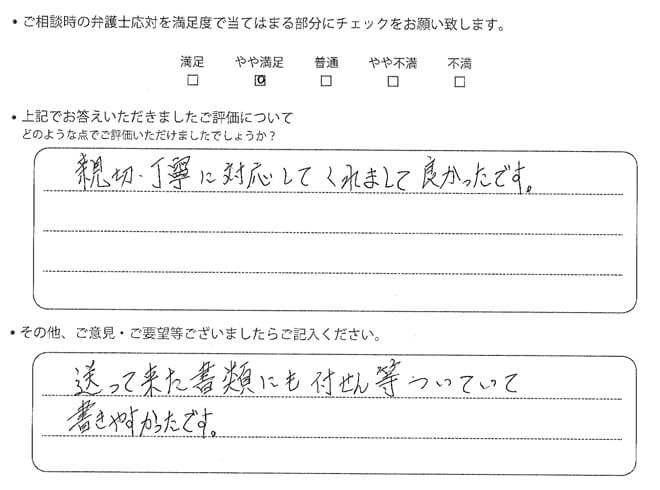 ・ご相談時の弁護士応対を満足度で当てはまる部分にチェックをお願い致します。
満足 やや満足 普通 やや不満 不満
・上記でお答えいただきましたご評価について
どのような点でご評価いただけましたでしょうか?
親切・丁寧に対応してくれまして良かったです。
・その他、ご意見・ご要望等ございましたらご記入ください。
送って来た書類にも付せん等ついていて
書きやすかったです。